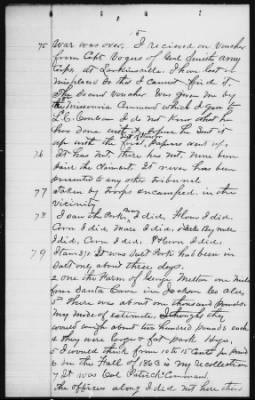 5
75 war was over. I recieved on Voucher
from Capt Vogue of Genl Smith army
Corps at Larkinsville. I have lost or
misplaced so that I cannot find it.
The second Voucher was given me by
the Missouria Command which I gave to
L.C. I do not know what he
has done with
up with the first Papers sent up.
76 It has not, there has not, never been
paid the Claimant. It never has been
presented to any other tribunal.
77 Taken by Troops encamped in the
vicinity
78 I saw the Pork, I did. Flour I did.
Corn I did. Mare I did. Mule
I did, Corn I did. I did.
79 Item 3/1 It was Salt Pork had been in
Salt only about three days.
2 on the Farm of George Melton one mile
from Santa Cave in Jackson Co Ala,
3d There was about one thousand pounds.
my mode of estimate. I thought they
would weigh about two hundred pounds each
4 they were large & fat pork Hogs.
5 I would think from 10 to 15 cents per pound
6 in the Fall of 1863 is my recollection
7 It was Col Patrick Command.
The officers along I did not hear them